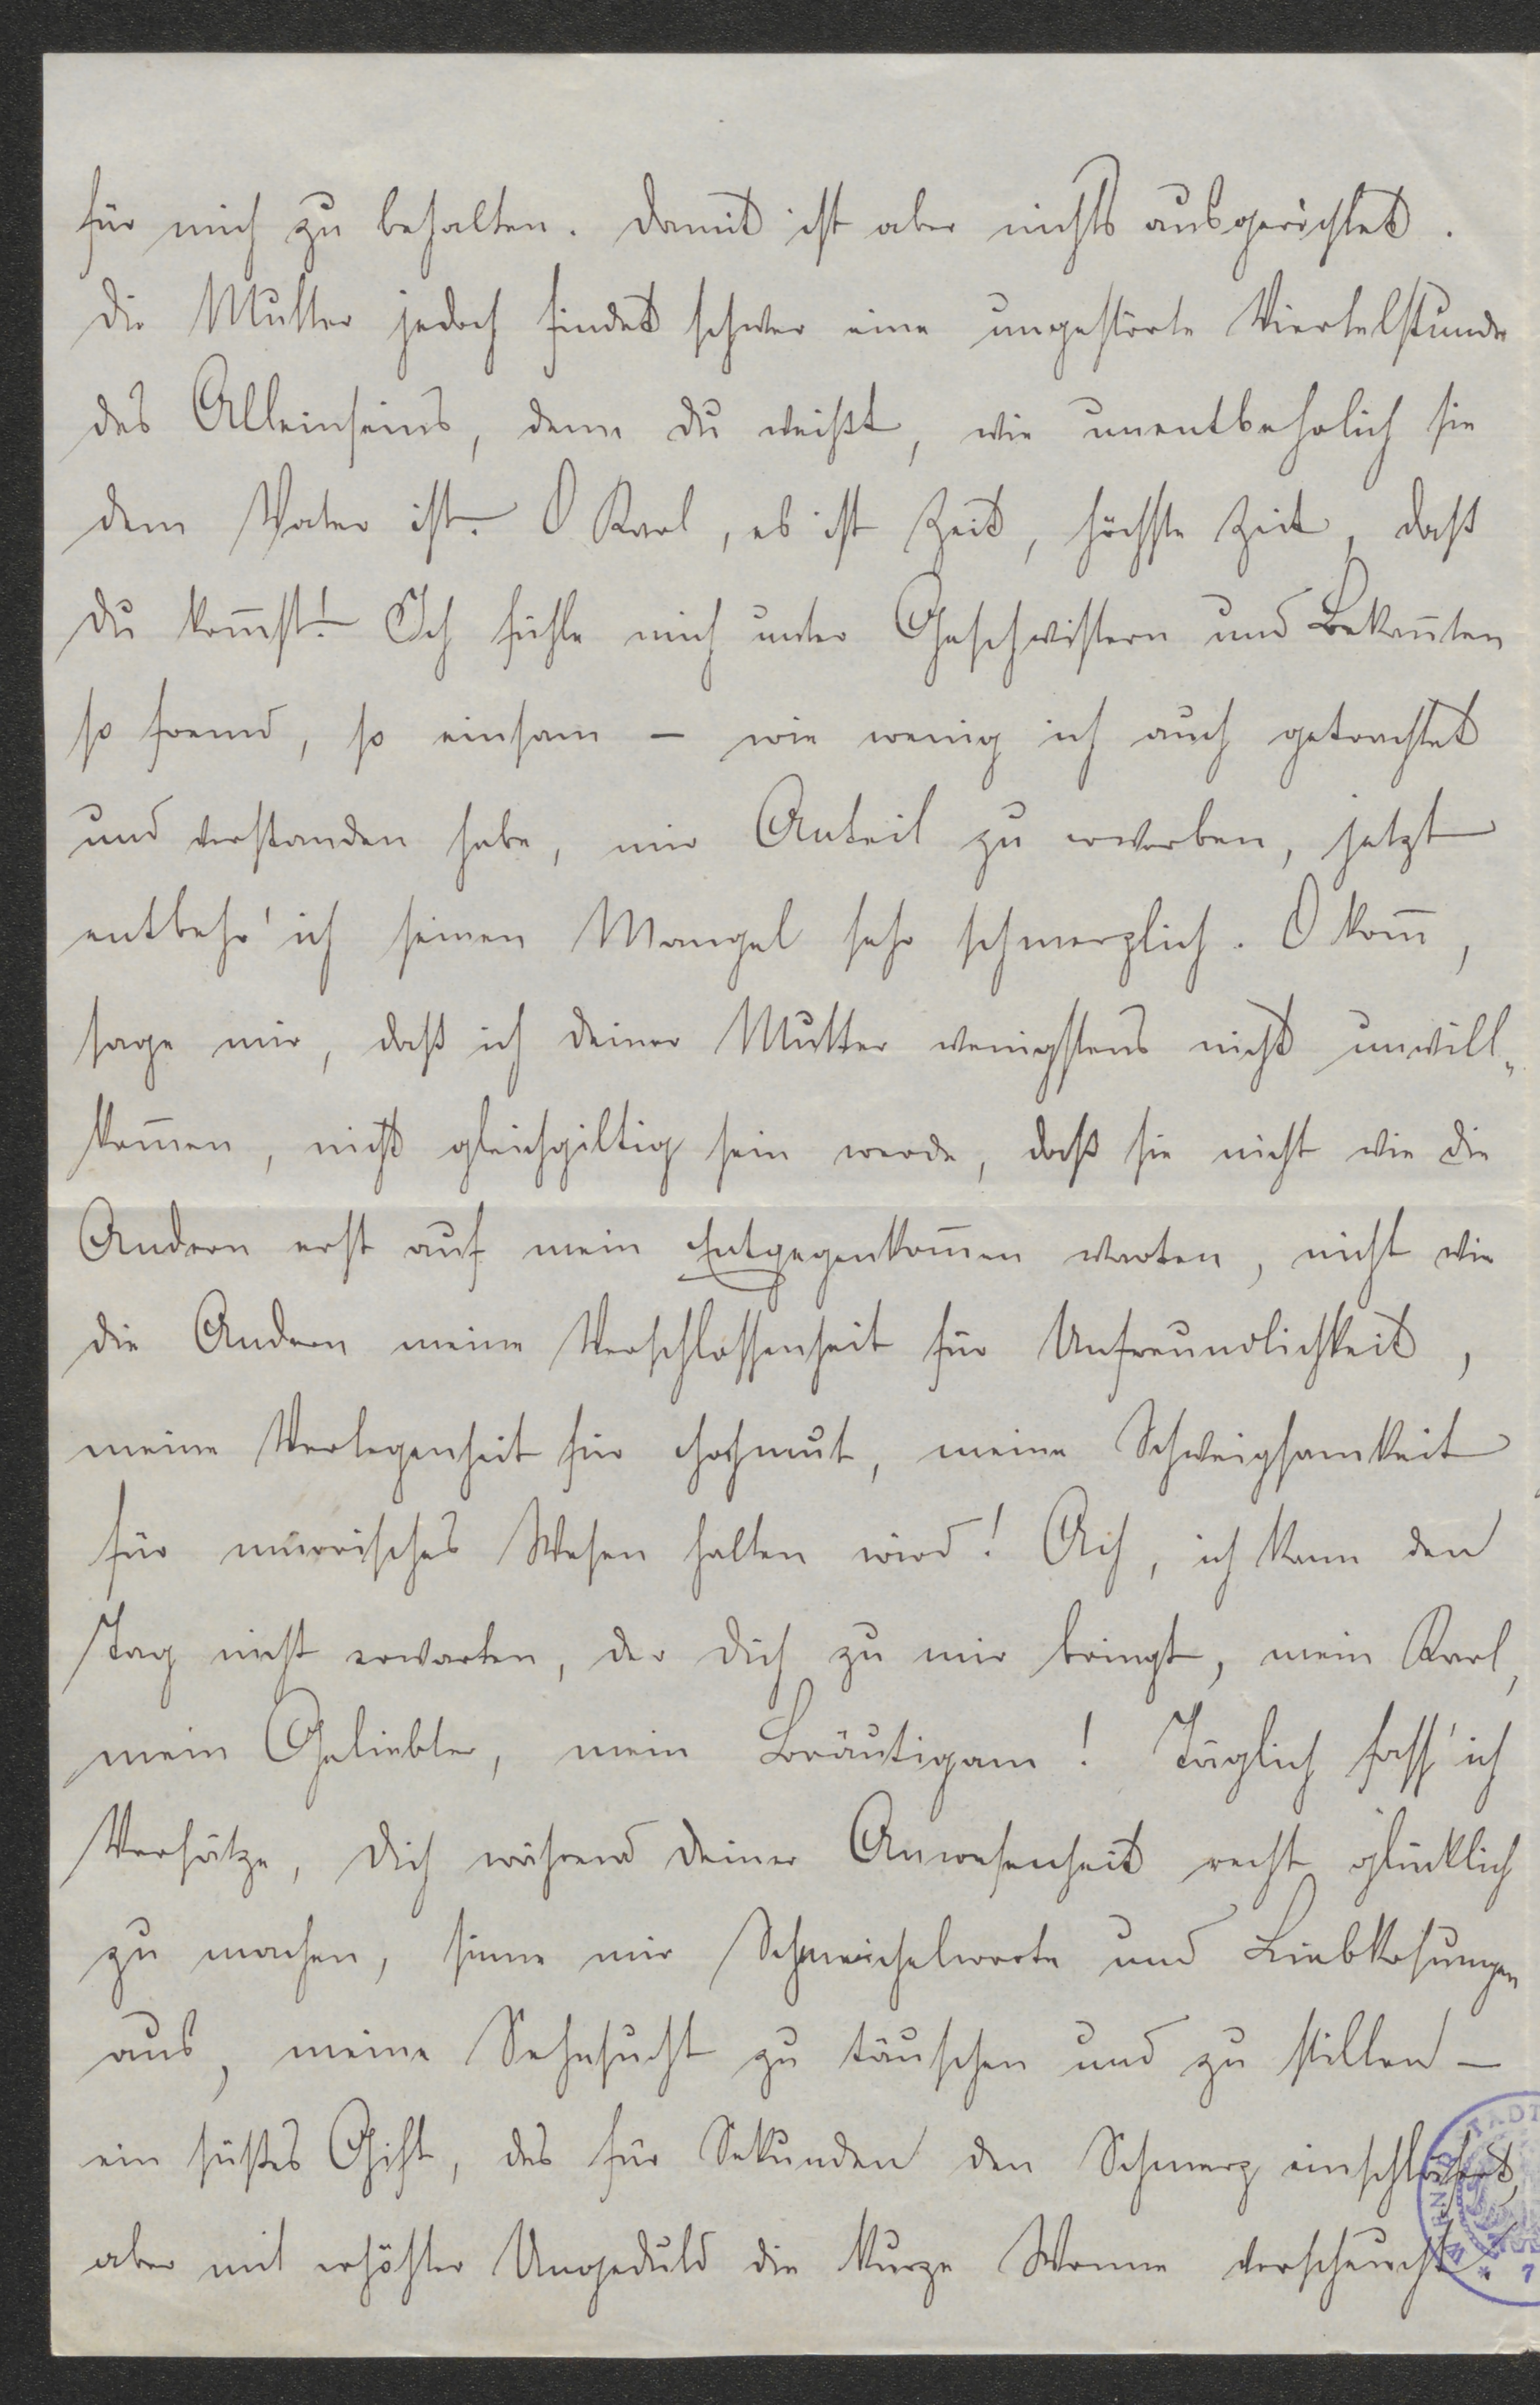 für mich zu behalten. Damit ist aber nichts ausgerichtet.
Die Mutter jedoch findet schwer eine ungestörte Viertelstunde
des Alleinseins, denn du weißt, wie unentbehrlich sie
dem Vater ist. – O Karl, es ist Zeit, höchste Zeit, daß
du kom̅st! – Ich fühle mich unter Geschwistern und Bekan̅ten
so fremd, so einsam – wie wenig ich auch getrachtet
und verstanden habe, mir Anteil zu erwerben, jetzt
entbehr' ich seinen Mangel sehr schmerzlich. O kom̅,
sage mir, daß ich deiner Mutter wenigstens nicht unwill„
kom̅en, nicht gleichgiltig sein werde, daß sie nicht wie die
Andern erst auf mein Entgegenkom̅en warten, nicht wie
die Andern meine Verschlossenheit für Unfreundlichkeit,
meine Verlegenheit für Hochmut, meine Schweigsamkeit
für mürrisches Wesen halten wird! Ach, ich kann den
Tag nicht erwarten, der dich zu mir bringt, mein Karl,
mein Geliebter, mein Bräutigam! Täglich fass' ich
Vorsätze, dich während deiner Anwesenheit recht glücklich
zu machen, sinne mir Schmeichelworte und Liebkosungen
aus, meine Sehnsucht zu täuschen und zu stillen –
ein süßes Gift, das für Sekunden den Schmerz einschläfert,
aber mit erhöhter Ungeduld die kurze Wonne verscheucht.